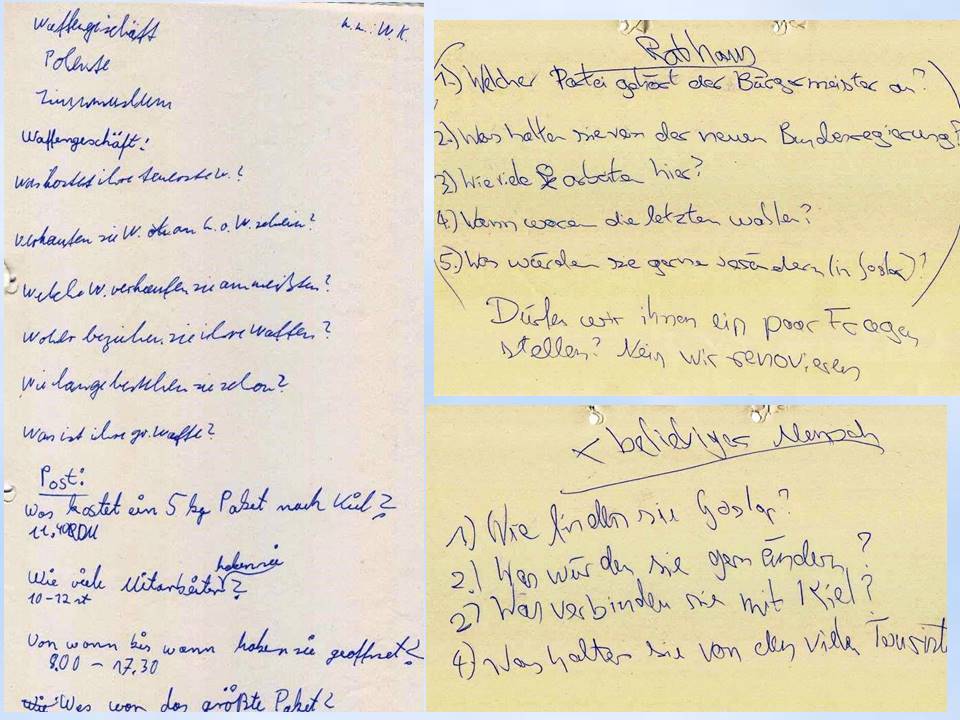 Waffengeschäft W.K.
Polente
Waffengeschäft:
Was kostet ihre teuerste W.?
verkaufen sie W. schein?
Welche W. verkaufen sie am meißten?
Woher beziehen sie ihre Waffen?
Wie lange bestehen sie schon?
Was ist ihre gr. Waffe?
Post:
Was kostet ein 5 kg Paket nach Kiel?
Wie viele Mitarbeiter haben sie?
10-12 st
Von wann bis wann haben sie geöffnet?
– 17.30
Was war das größte Paket?
Rathaus
1.) Welcher Partei gehört der Bürgermeister an?
2.) Was halten sie von der neuen Bundesregierung?
3.) Wie viele arbeiten hier?
4.) Wann waren die letzten wahlen?
5.) Was würden sie gerne verändern (in Goslar)?
Dürfen wir ihnen ein paar Fragen
stellen? Nein wir renovieren
beliebiger Mensch
1.) Wie finden sie Goslar?
2.) Was würden sie gern ändern?
2) Was verbinden sie mit Kiel?
4) Was halten sie von den vielen Tourist